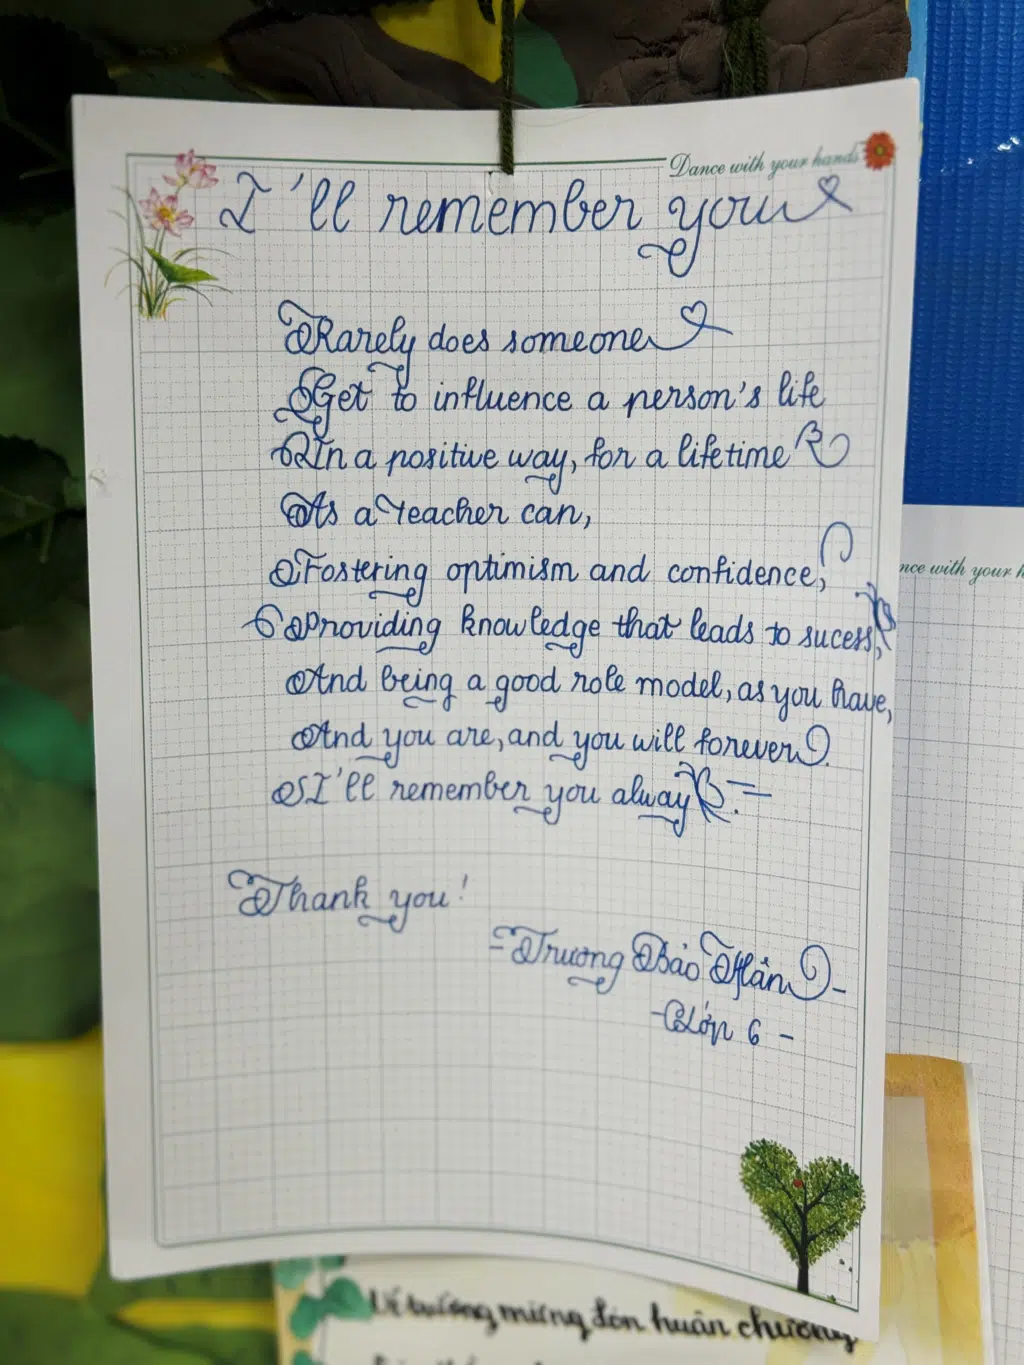 Dance with your hands
I'll remember you
Rarely does someone
Get to influence a person's life
In a positive way, for a lifetime
As a teacher can,
Fostering optimism and confidence,
Providing knowledge that leads to sucess,
And being a good role model, as you have,
And you are, and you will forever.
I'll remember you alway.
Thank you!
- Trương Bảo Hân -
- Lớp 6 -
nce with your h
Lễ tường mừng đón huân chương